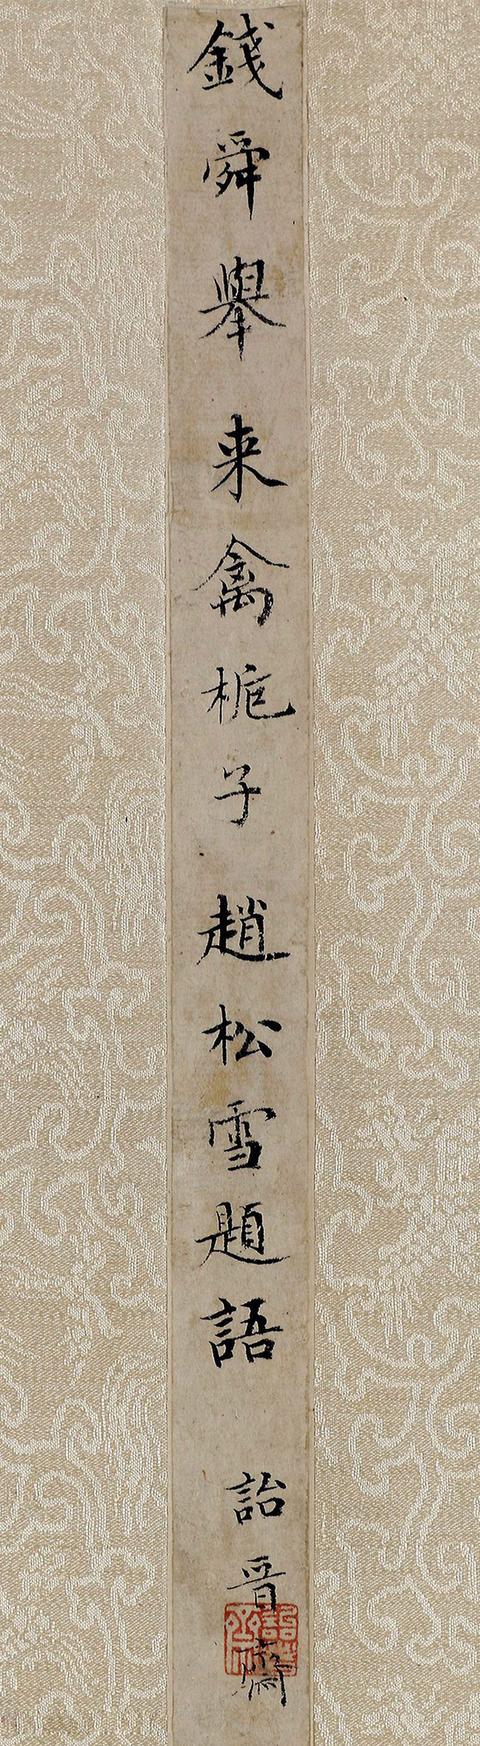 錢舜舉来禽梔子趙松雪題語
詒晉齋
詒晉齋